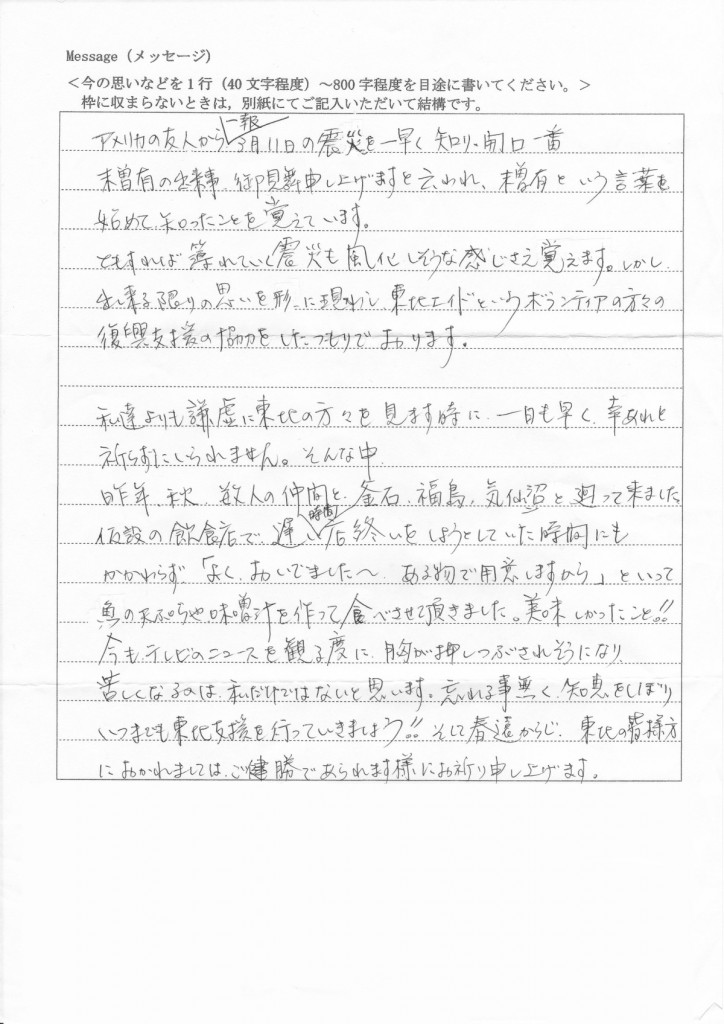 Message（メッセージ）
＜今の思いなどを1行（40文字程度）～800字程度を目途に書いてください。＞
枠に収まらないときは，別紙にてご記入いただいて結構です。
一報
アメリカの友人から3月11日の震災を一早く知り、開口一番
未曽有の出来事、御見舞申し上げますと云われ、未曽有という言葉を
始めて知ったことを覚えています。
ともすれば薄れていく震災も風化しそうな感じさえ覚えます。しかし
出来る限りの思いを形に現わし東北エイドというボランティアの方々の
復興支援の協力をしたつもりでおります。
私達よりも謙虚に東北の方々を見ます時に、一日も早く、幸あれと
祈らずにいられません。そんな中
昨年、秋、数人の仲間と、釜石、福島、気仙沼と廻って来ました
時間
仮設の飲食店で、遅い店終いをしようとしていた時間にも
かかわらず「よく、おいでました～、ある物で用意しますから」といって
魚の天ぷらや味噌汁を作って食べさせて頂きました。美味しかったこと!!
今もテレビのニュースを観る度に、胸が押しつぶされそうになり
苦しくなるのは、私だけではないと思います。忘れる事無く、知恵をしぼり
いつまでも東北支援を行っていきましょう!! そして春遠からじ、東北の皆様方
におかれましては、ご健勝であられます様にお祈り申し上げます。